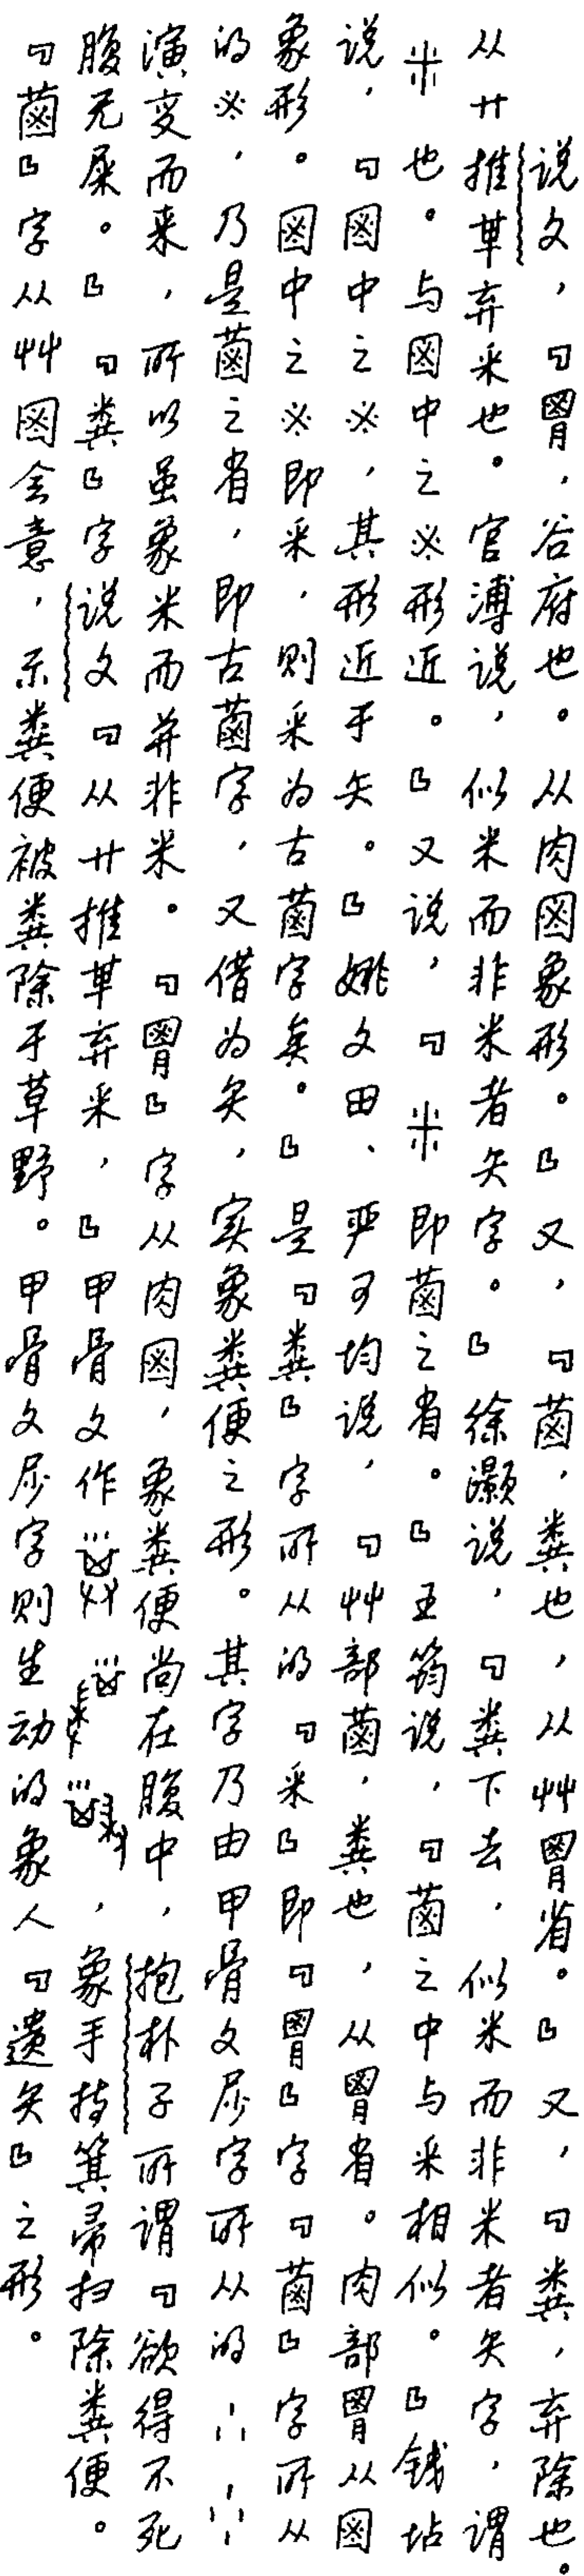 说文，「𦞅，谷府也。从肉𡇒象形。」又，「菌，粪也，从艸𦞅省。」又，「粪，弃除也。
从廾推𠦒弃釆也。官溥说，似米而非米者矢字。」徐灏说，「粪下去，似米而非米者矢字，谓
也。与𡇒中之※形近。」又说，「即𦳊之省。」王筠说，「𦳊之中与釆相似。」钱坫
说，「𡇒中之※，其形近于矢。」姚文田、严可均说，「艸部𦳊，粪也，从𦞅省。肉部𦞅从𡇒
象形。𡇒中之※即釆，则釆为古𦳊字矣。」是「粪」字所从的「釆」即「𦞅」字「𦳊」字所从
的※，乃是𦳊之省，即古𦳊字，又借为矢，实象粪便之形。其字乃由甲骨文屎字所从的
演变而来，所以虽象米而并非米。「𦞅」字从肉𡇒，象粪便尚在腹中，抱朴子所谓「欲得不死
腹无屎。」「粪」字说文「从廾推𠦒弃釆，」甲骨文作，象手持箕帚扫除粪便。
「𦳊」字从艸𡇒会意，示粪便被粪除于草野。甲骨文屎字则生动的象人「遗矢」之形。